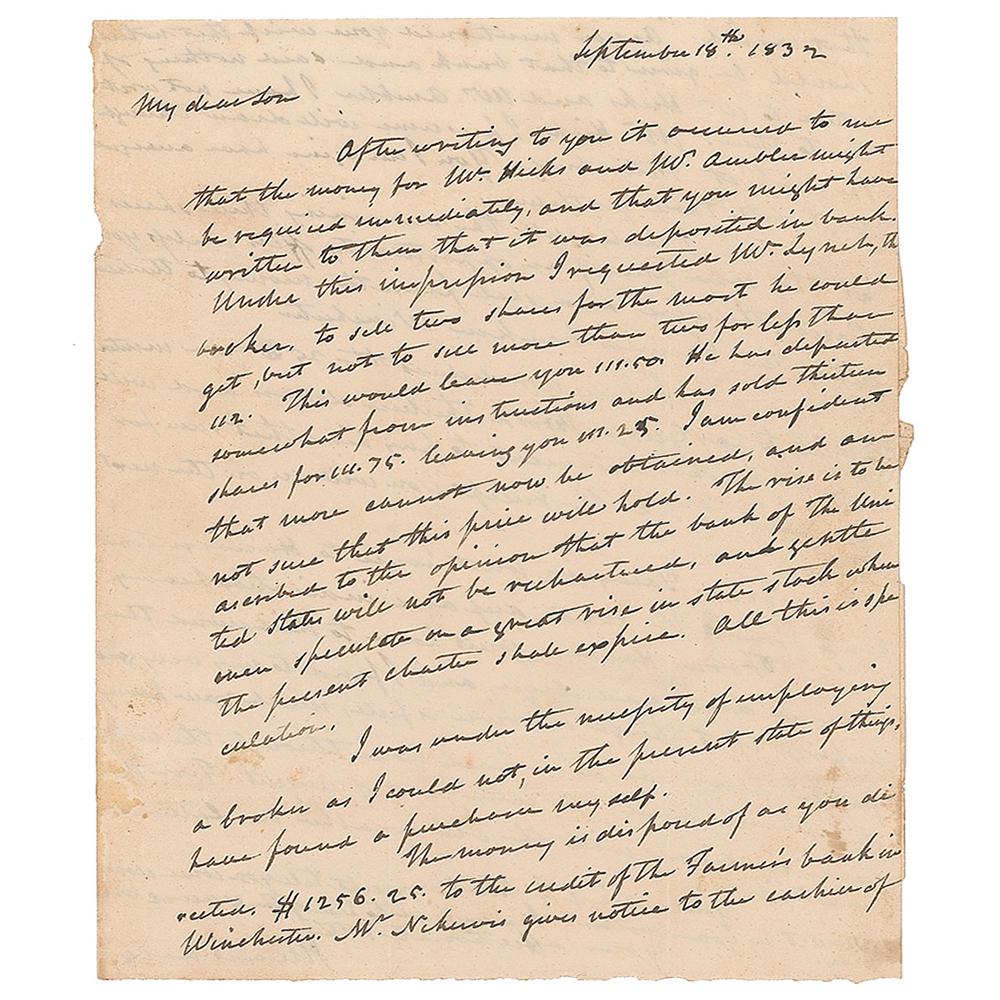 September 18th. 1832
My dear Son
After writing to you it occurred to me
that the money for Mr. Hicks and Mr. Ambler might
be required immediately, and that you might have
written to them that it was deposited in bank.
Under this impression I requested Mr. Lynch, th
broker, to sell two shares for the most he could
get, but not to sell more than two for less than
112. This would leave you 111.50. He has departed
somewhat from instructions and has sold thirteen
shares for 111.75. leaving you 111.25. I am confident
that more cannot now be obtained, and am
not sure that this price will hold. The rise is to be
ascribed to the opinion that the bank of The Uni
ted States will not be rechartered, and gentle
men speculate on a great rise in state stock when
the present charter shall expire. All this is spe
culation.
I was under the necessity of employing
a broker as I could not, in the present state of things,
have found a purchaser myself.
The money is disposed of as you di
rected. $1256.25. to the credit of the Farmers bank in
Winchester. Mr. Nekervis gives notice to the cashier of